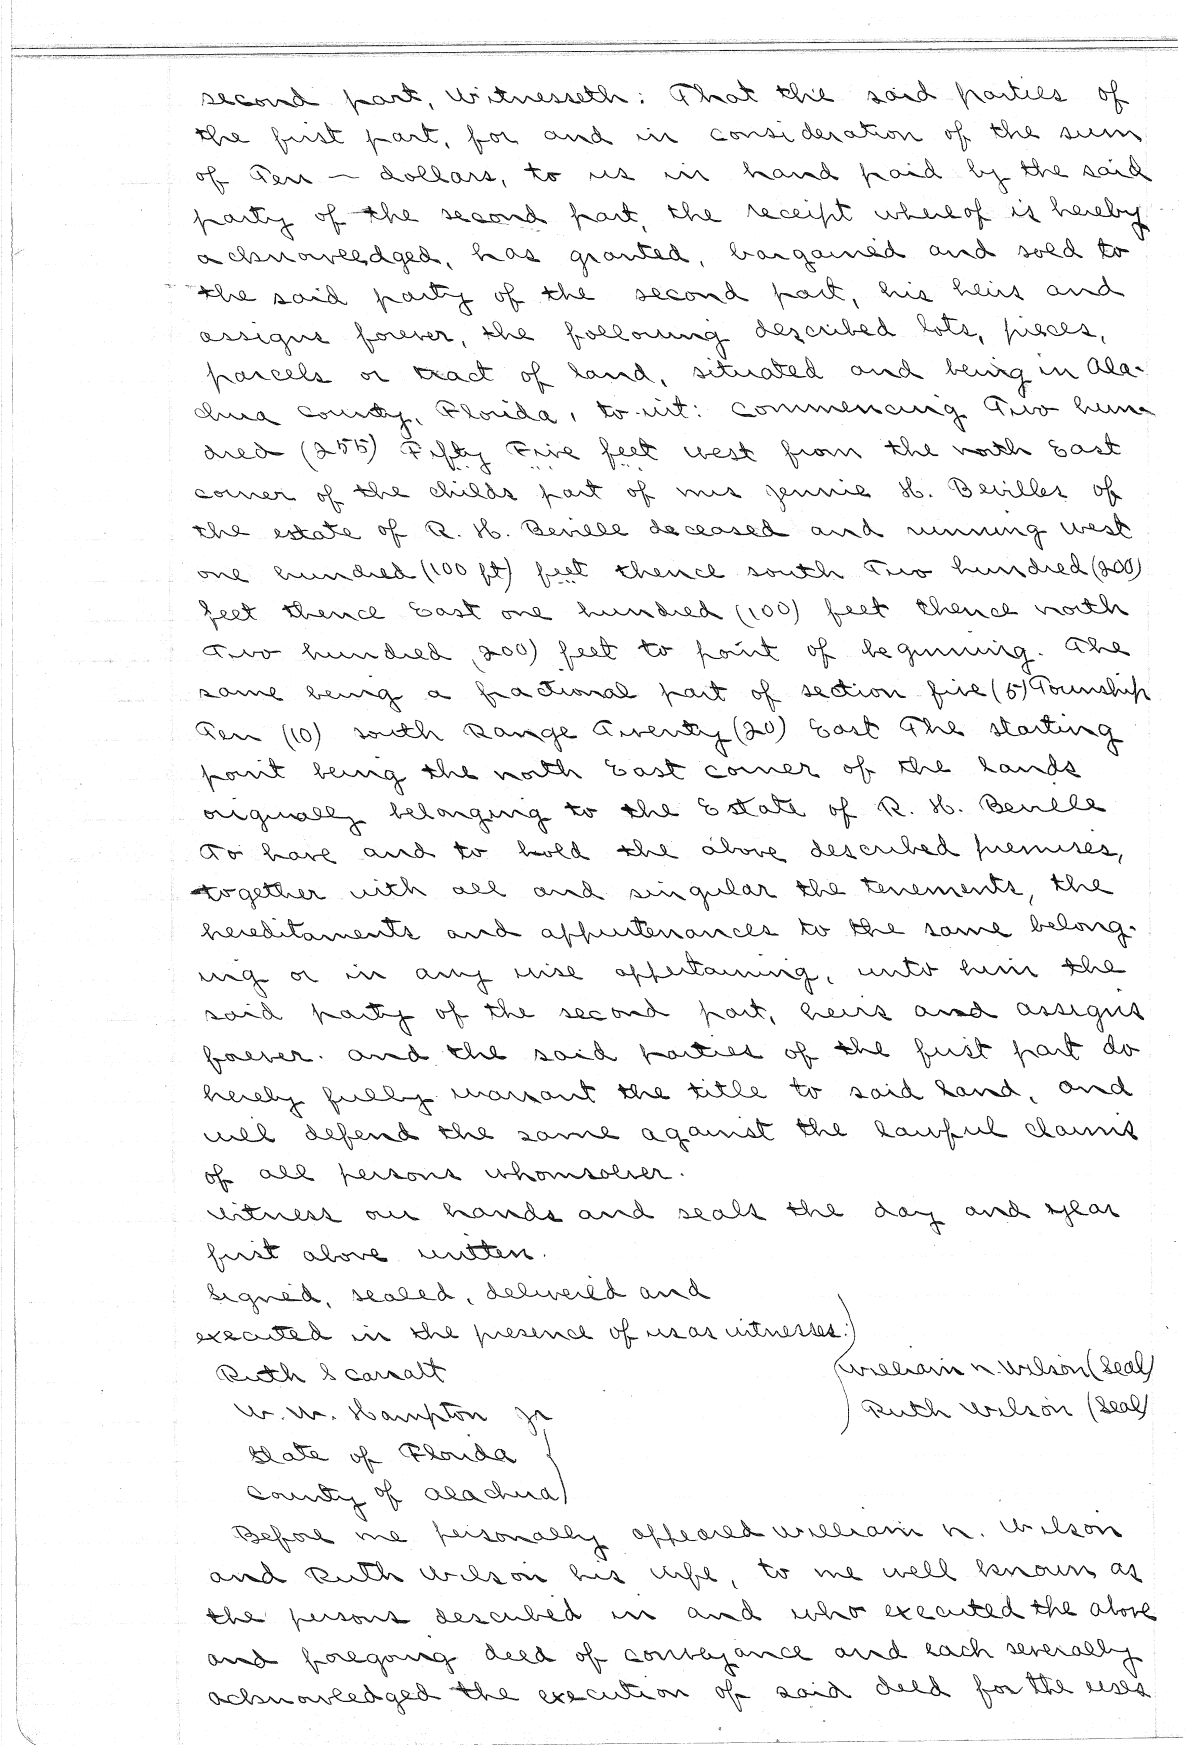 second part, Witnesseth: That the said parties of
the first part, for and in consideration of the sum
of Ten — dollars, to us in hand paid by the said
party of the second part, the receipt whereof is hereby
acknowledged, has granted, bargained and sold to
the said party of the second part, his heirs and
assigns forever, the following described lots, pieces,
parcels or tract of land, situated and being in Ala-
chua County, Florida, to-wit: Commencing Two hun-
dred (255) Fifty Five feet west from the north East
corner of the childs part of Mrs Jennie H. Bevilles of
the estate of R. H. Beville deceased and running west
one hundred (100 ft) feet thence south Two hundred (200)
feet thence East one hundred (100) feet thence north
Two hundred (200) feet to point of beginning. The
same being a fractional part of section five (5) Township
Ten (10) south Range Twenty (20) East The starting
point being the north East corner of the lands
originally belonging to the Estate of R. H. Beville
To have and to hold the above described premises,
together with all and singular the tenements, the
hereditaments and appurtenances to the same belong-
ing or in any wise appertaining, unto him the
said party of the second part, heirs and assigns
forever. and the said parties of the first part do
hereby fully warrant the title to said land, and
will defend the same against the lawful claims
of all persons whomsoever.
Witness our hands and seals the day and year
first above written.
Signed, sealed, delivered and
executed in the presence of us as witnesses:)
Ruth S William N. Wilson (Seal)
W. W. Hampton Jr Ruth Wilson (Seal)
State of Florida
County of Alachua)
Before me personally appeared William N. Wilson
and Ruth Wilson his wife, to me well known as
the persons described in and who executed the above
and foregoing deed of conveyance and each severally
acknowledged the execution of said deed for the uses